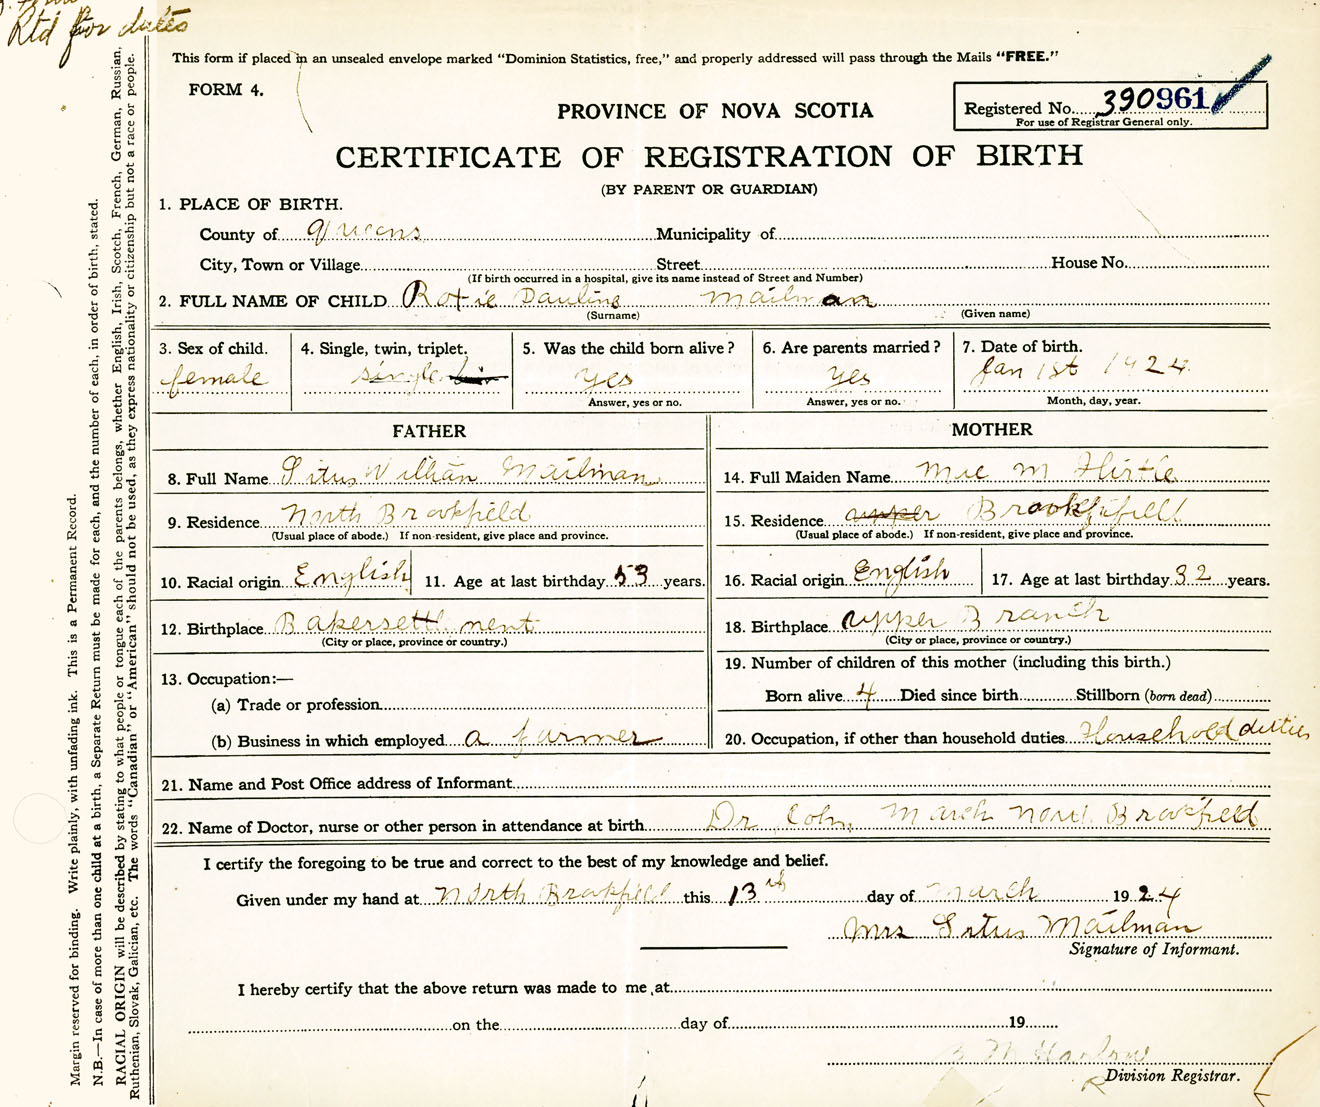 Rtd for dates
This form if placed in an unsealed envelope marked "Dominion Statistics, free," and properly addressed will pass through the Mails "FREE."
FORM 4.
Registered No. 390961
For use of Registrar General only.
PROVINCE OF NOVA SCOTIA
CERTIFICATE OF REGISTRATION OF BIRTH
(BY PARENT OR GUARDIAN)
1. PLACE OF BIRTH.
County of Queens Municipality of
City, Town or Village Street House No.
(If birth occurred in a hospital, give its name instead of Street and Number)
2. FULL NAME OF CHILD Rotie Pauline Mailman
(Surname) (Given name)
3. Sex of child. 4. Single, twin, triplet. 5. Was the child born alive? 6. Are parents married? 7. Date of birth.
female single yes yes Jan 1st 1924
Answer, yes or no. Answer, yes or no. Month, day, year.
FATHER
8. Full Name Situs William Mailman
9. Residence North Brookfield
(Usual place of abode.) If non-resident, give place and province.
10. Racial origin English 11. Age at last birthday 53 years.
12. Birthplace Bakersettlment
(City or place, province or country.)
13. Occupation:—
(a) Trade or profession
(b) Business in which employed a farmer
MOTHER
14. Full Maiden Name M Hirtle
15. Residence upper Brookfifell
(Usual place of abode.) If non-resident, give place and province.
16. Racial origin English 17. Age at last birthday 32 years.
18. Birthplace upper Branch
(City or place, province or country.)
19. Number of children of this mother (including this birth.)
Born alive 4 Died since birth Stillborn (born dead)
20. Occupation, if other than household duties Household duties
21. Name and Post Office address of Informant
22. Name of Doctor, nurse or other person in attendance at birth Dr March Brookfield
I certify the foregoing to be true and correct to the best of my knowledge and belief.
Given under my hand at North Brookfield this 13th day of March 1924
Mrs Situs Mailman
Signature of Informant.
I hereby certify that the above return was made to me at
on the day of 19
Harlow
Division Registrar.
Margin reserved for binding. Write plainly, with unfading ink. This is a Permanent Record.
N.B.—In case of more than one child at a birth, a Separate Return must be made for each, and the number of each, in order of birth, stated.
RACIAL ORIGIN will be described by stating to what people or tongue each of the parents belongs, whether English, Irish, Scotch, French, German, Russian,
Ruthenian, Slovak, Galician, etc. The words "Canadian" or "American" should not be used, as they express nationality or citizenship but not a race or people.